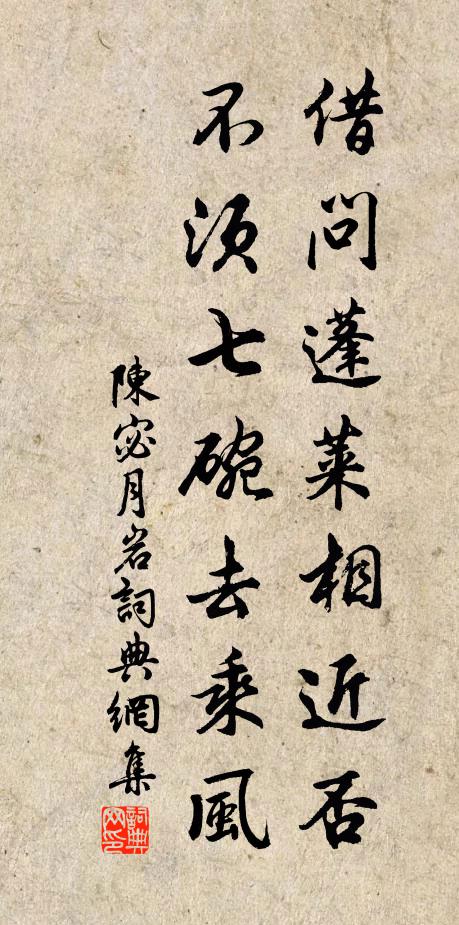 借問蓬萊相近否
不須七碗去乘風
陳宓月岩詞典網集
詞典网印